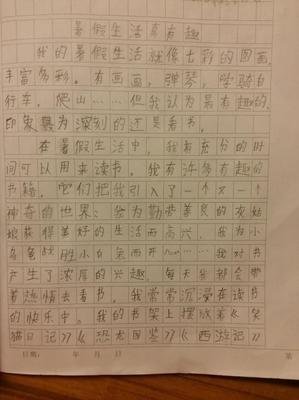 暑假生活真有趣
我的暑假生活就像七彩的图画,
丰富多彩。有画画,弹琴,学骑自
行车,爬山……但我认为最有趣的,
印象最为深刻的还是看书。
在暑假生活中,我有充分的时
间可以用来读书。我有许多有趣的
书籍。它们把我引入了一个又一个
神奇的世界:我为勤劳善良的灰姑
娘获得美好的生活而高兴,我为小
乌龟战胜小白兔而开心……我对书
产生了浓厚的兴趣。每天我都会带
着热情去看书。我常常沉浸在读书
的快乐中。我的书架上摆放着《笑
猫日记》《恐龙图鉴》《西游记》
日期: 年 月 日 第